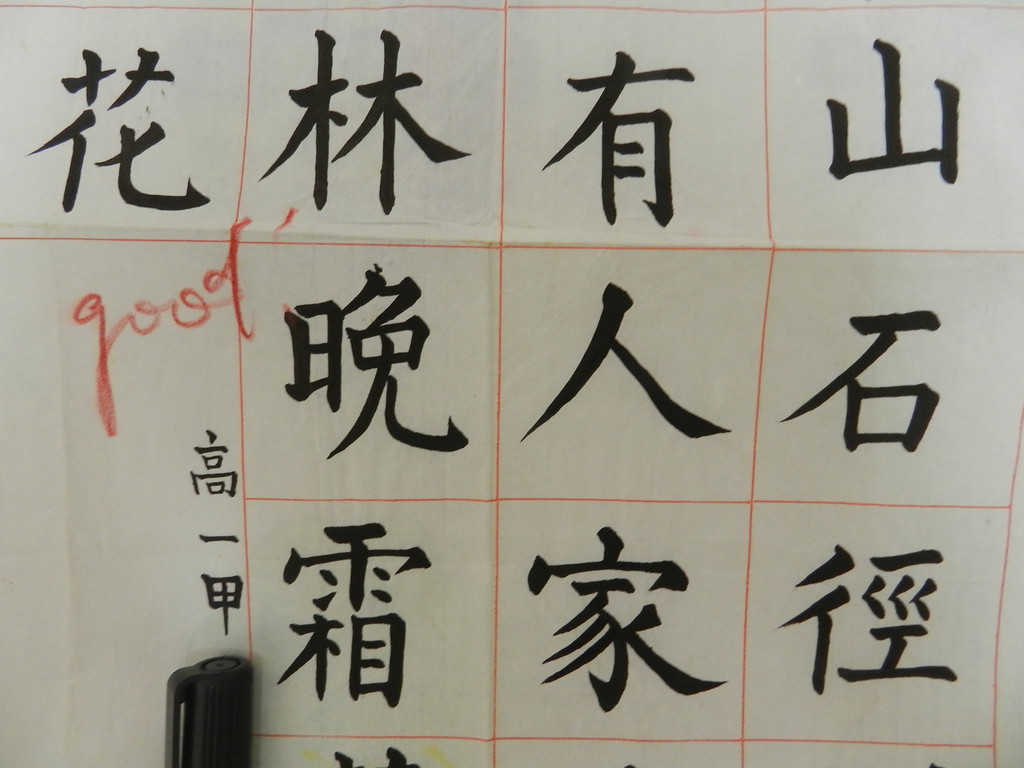 山石徑
有人家
林晚霜
花
高一甲
good